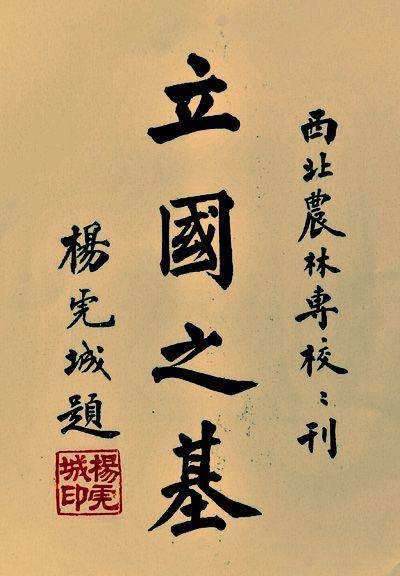 西北農林專校〻刊
立國之基
楊虎城題
楊虎城印